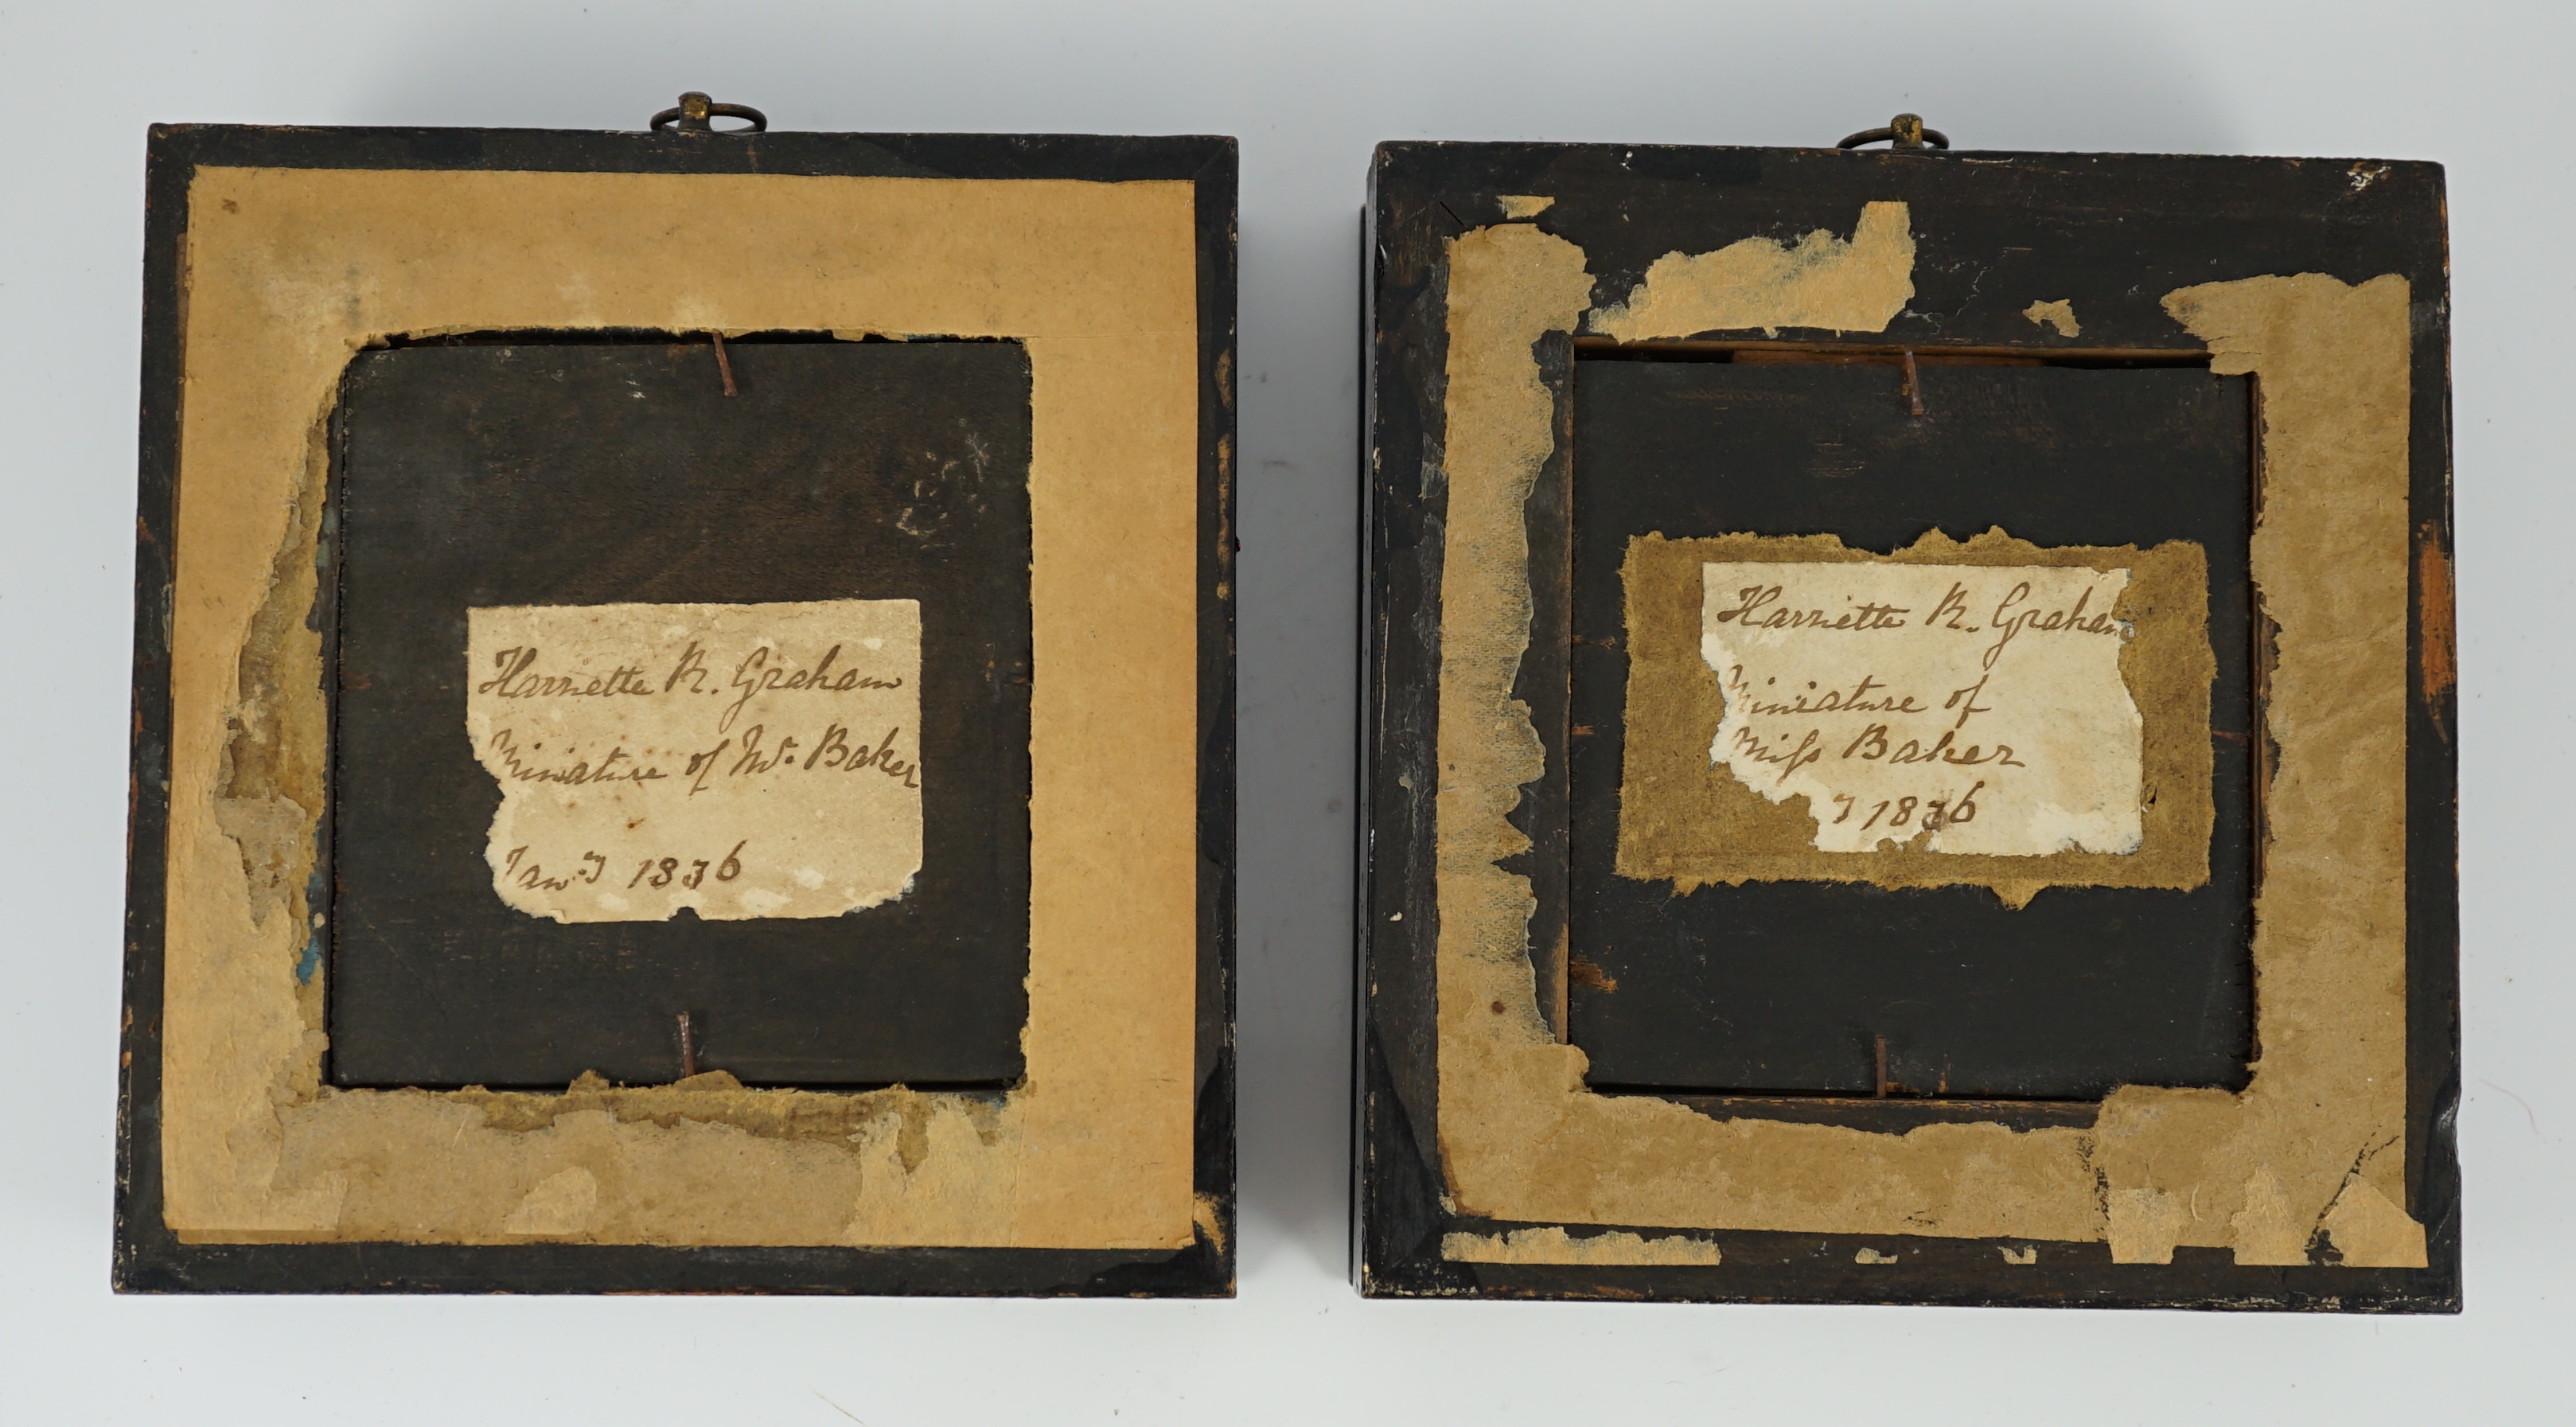 Harriette R. Graham
Miniature of Mr. Baker
Jan.y 1836
Harriette R. Graham
Miniature of
Miſs Baker
y 1836